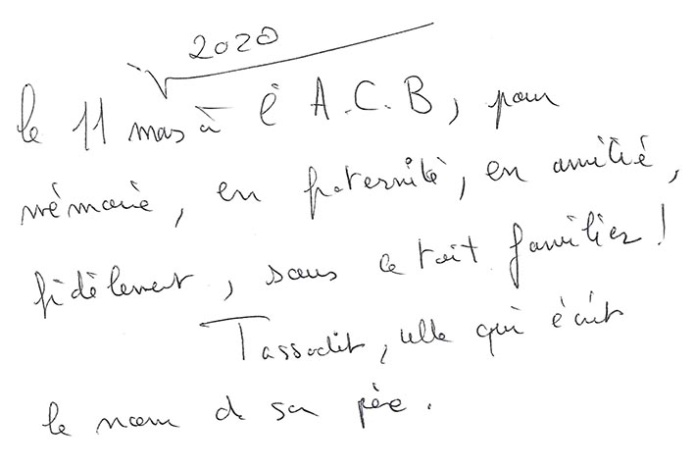 2020
le 11 mars à l'A.C.B, pour
mémoire, en fraternité, en amitié,
fidèlement, sous ce toit familier !
Tassadit, celle qui écrit
le nom de son père.